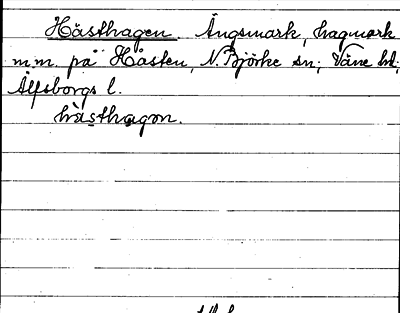 Hästhagen. Ängsmark, hagmark
m.m. på Håsten, N. Björke sn; Väne hd,
Älfsborgs l.
hàsthagɘn.